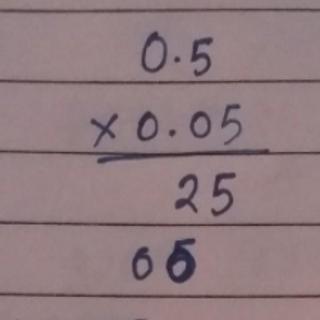 0.5
× 0.05
25
00